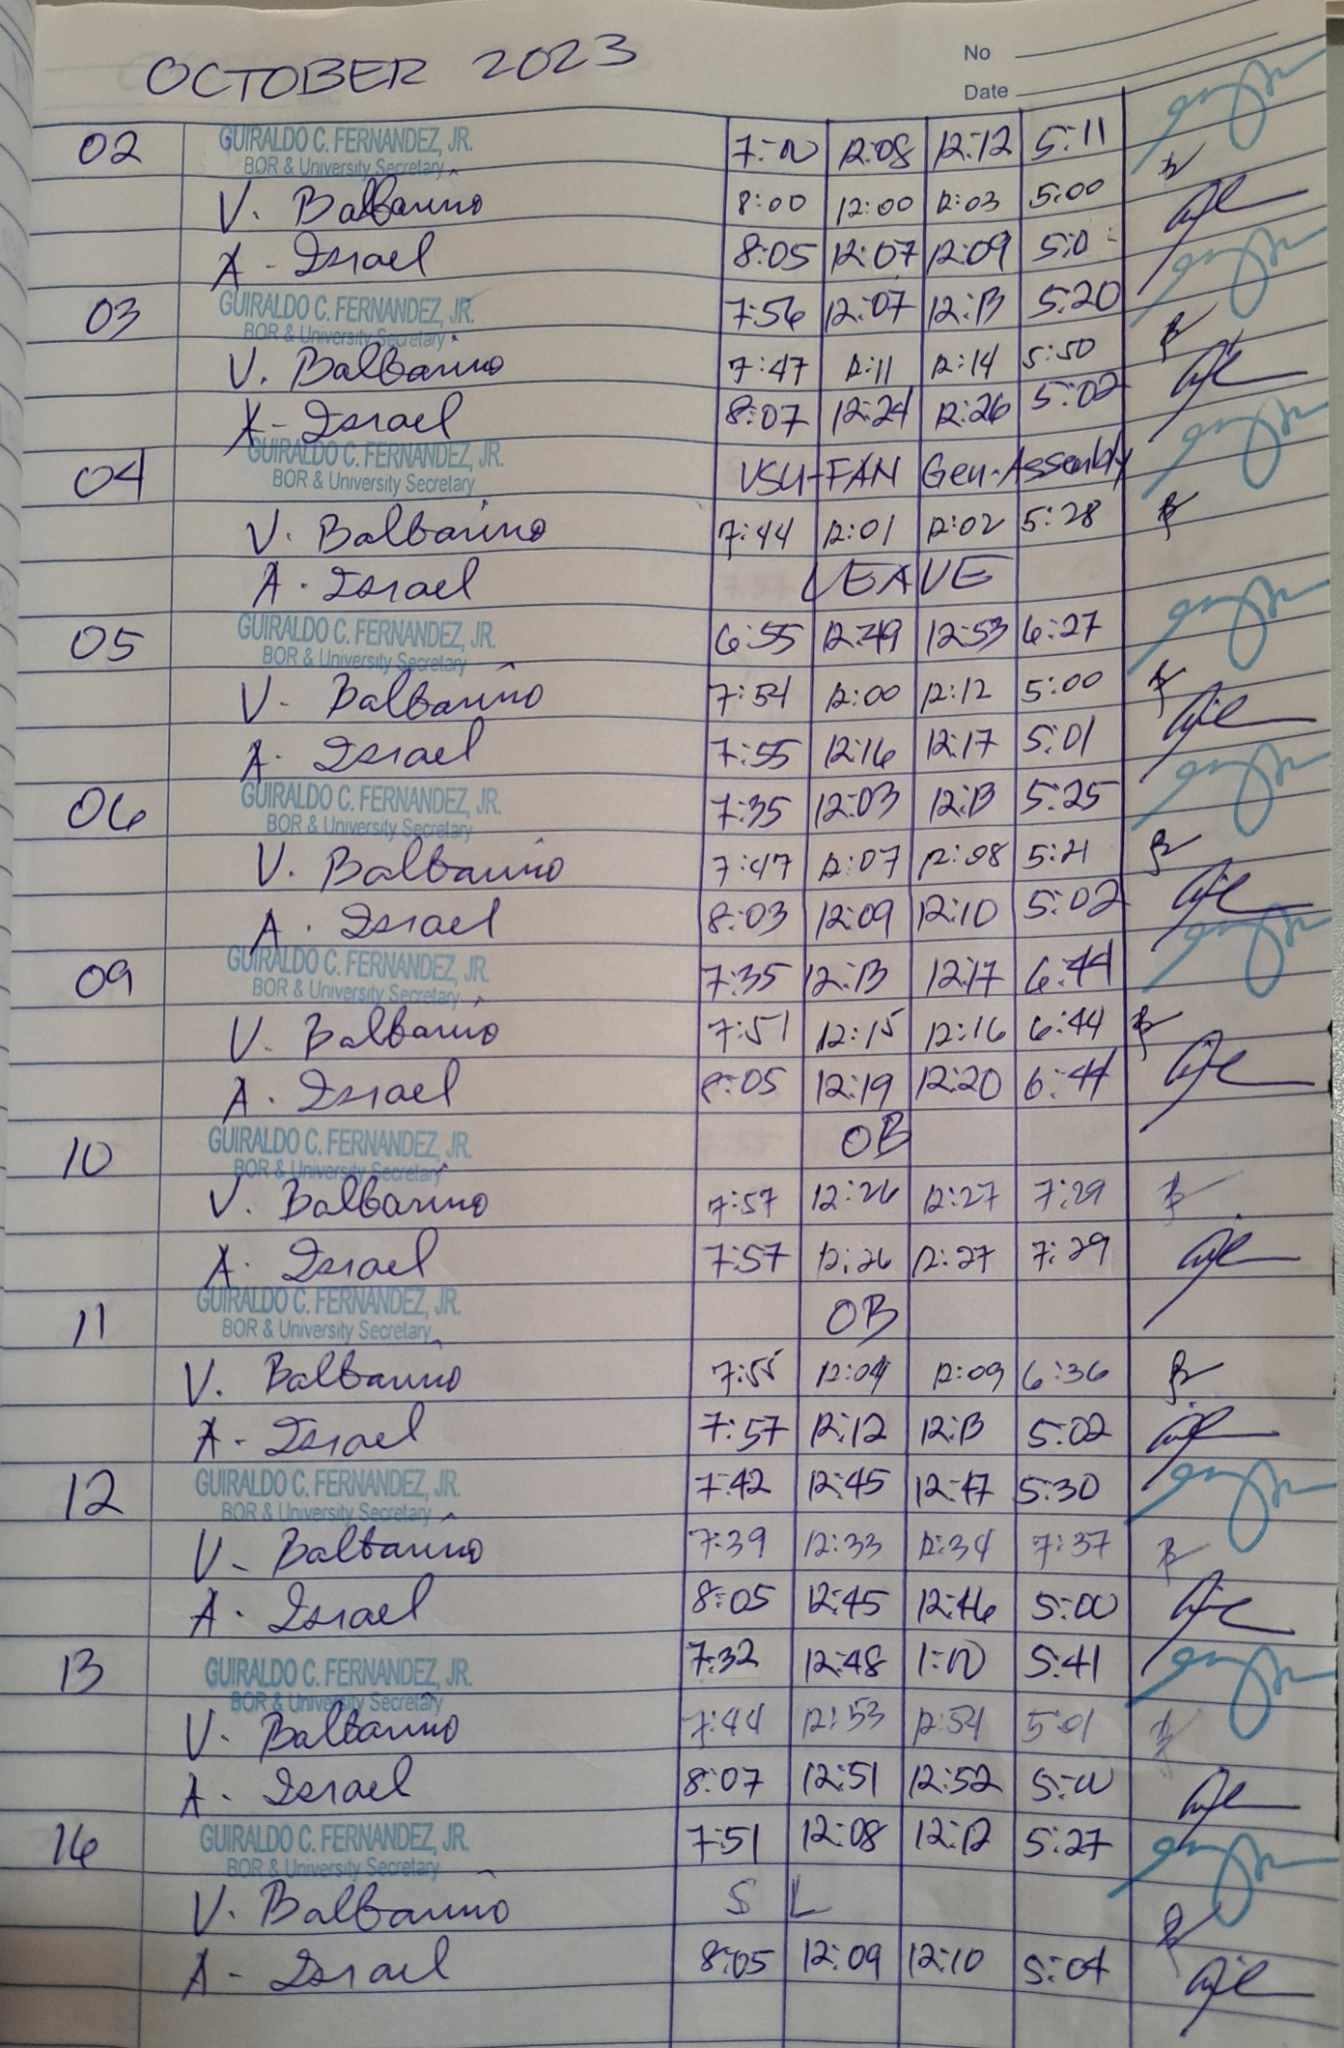 OCTOBER 2023
No
Date
02 GUIRALDO C. FERNANDEZ, JR. 7:00 12:08 12:12 5:11
BOR & University Secretary
V. Balbarino 8:00 12:00 12:03 5:00
A. Israel 8:05 12:07 12:09
03 GUIRALDO C. FERNANDEZ, JR. 7:56 12:07 12:13 5:20
BOR & University Secretary
V. Balbarino 7:47 12:11 12:14 5:50
A. Israel 8:07 12:24 12:26 5:02
04 GUIRALDO C. FERNANDEZ, JR. VSU-FAN Gen. Assembly
BOR & University Secretary
V. Balbarino 7:44 12:01 12:02 5:28
A. Israel LEAVE
05 GUIRALDO C. FERNANDEZ, JR. 6:55 12:49 12:53 6:27
BOR & University Secretary
V. Balbarino 7:54 12:00 12:12 5:00
A. Israel 7:55 12:16 12:17 5:01
06 GUIRALDO C. FERNANDEZ, JR. 7:35 12:03 12:13 5:25
BOR & University Secretary
V. Balbarino 7:47 12:07 12:08 5:21
A. Israel 8:03 12:09 12:10 5:02
09 GUIRALDO C. FERNANDEZ, JR. 7:35 12:13 12:17 6:44
BOR & University Secretary
V. Balbarino 7:51 12:15 12:16 6:44
A. Israel 8:05 12:19 12:20 6:44
10 GUIRALDO C. FERNANDEZ, JR. OB
BOR & University Secretary
V. Balbarino 7:57 12:26 12:27 7:29
A. Israel 7:57 12:26 12:27 7:29
11 GUIRALDO C. FERNANDEZ, JR. OB
BOR & University Secretary
V. Balbarino 7:55 12:04 12:09 6:36
A. Israel 7:57 12:12 12:13 5:02
12 GUIRALDO C. FERNANDEZ, JR. 7:42 12:45 12:47 5:30
BOR & University Secretary
V. Balbarino 7:39 12:33 12:34 7:37
A. Israel 8:05 12:45 12:46 5:00
13 GUIRALDO C. FERNANDEZ, JR. 7:32 12:48 1:00 5:41
BOR & University Secretary
V. Balbarino 7:44 12:53 12:54 5:01
A. Israel 8:07 12:51 12:52 5:00
16 GUIRALDO C. FERNANDEZ, JR. 7:51 12:08 12:12 5:27
BOR & University Secretary
V. Balbarino S L
A. Israel 8:05 12:09 12:10 5:04